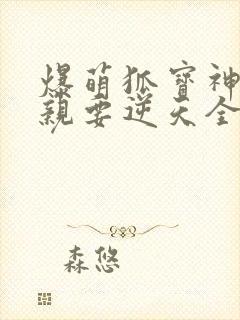 爆萌狐寶神
親要逆天全
森悠